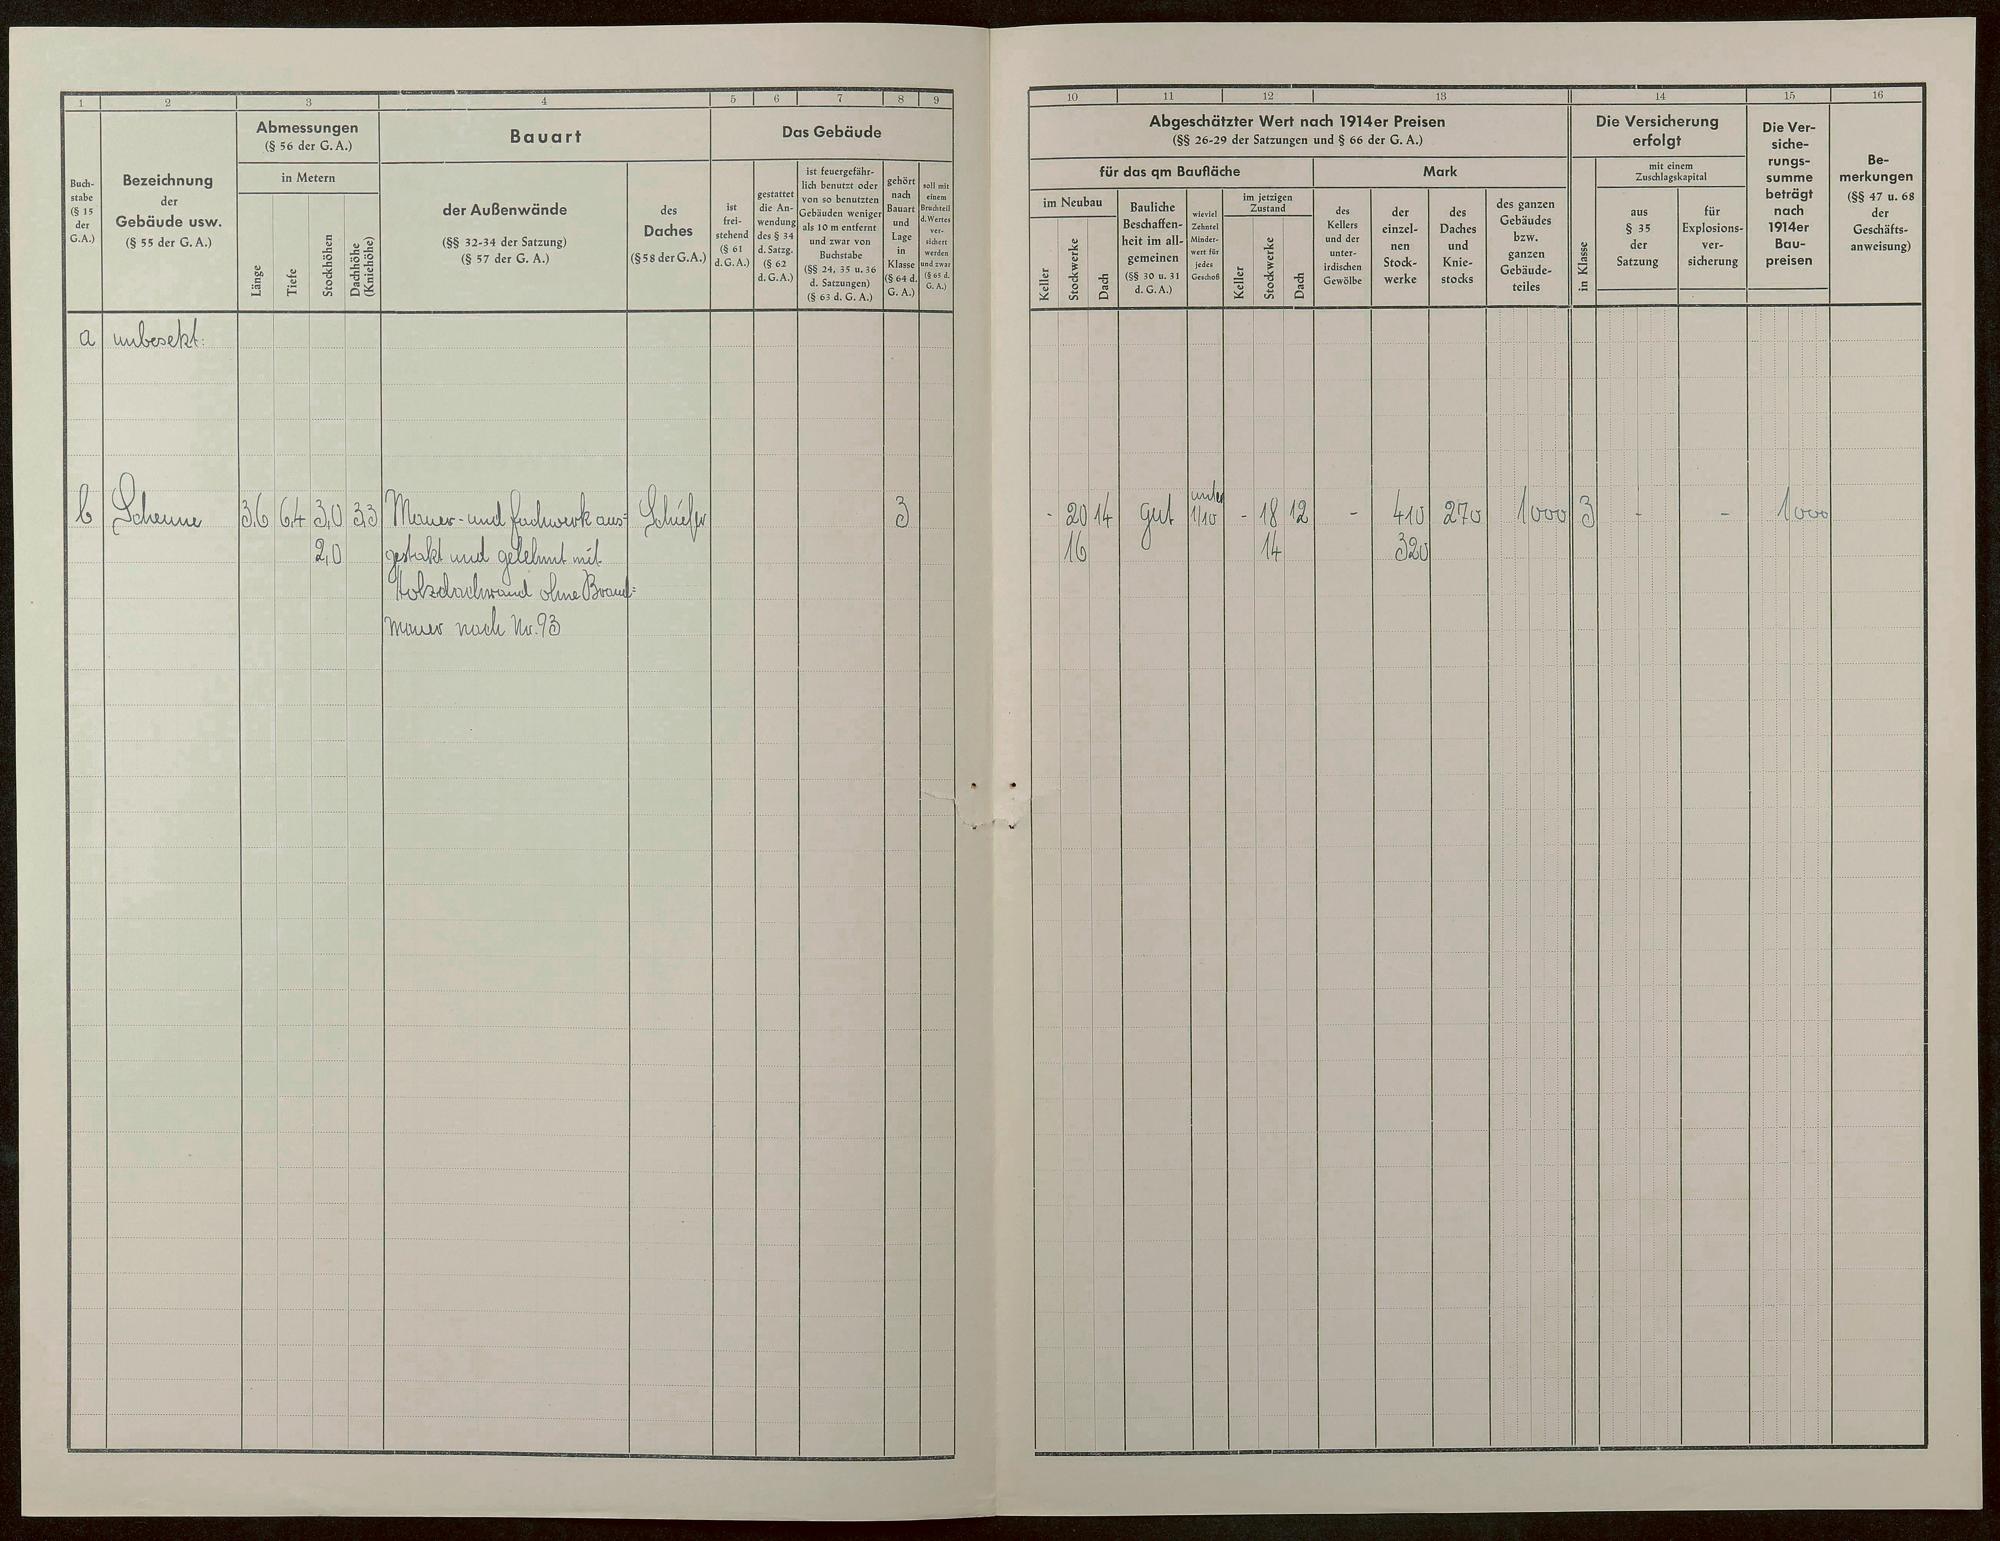 1 2 3 4 5 6 7 8 9
Buch-
stabe
(§ 15
der
G.A.)
Bezeichnung
der
Gebäude usw.
(§ 55 der G. A.)
Abmessungen
(§ 56 der G. A.)
in Metern
Länge
Tiefe
Stockhöhen
Dachhöhe
(Kniehöhe)
Bauart
der Außenwände
(§§ 32-34 der Satzung)
(§ 57 der G. A.)
des
Daches
(§ 58 der G. A.)
Das Gebäude
ist
frei-
stehend
(§ 61
d. G. A.)
gestattet
die An-
wendung
des § 34
d. Satzg.
(§ 62
d. G. A.)
ist feuergefähr-
lich benutzt oder
von so benutzten
Gebäuden weniger
als 10 m entfernt
und zwar von
Buchstabe
(§§ 24, 35 u. 36
d. Satzungen)
(§ 63 d. G. A.)
gehört
nach
Bauart
und
Lage
in
Klasse
(§ 64 d.
G. A.)
soll mit
einem
Bruchteil
d. Wertes
ver-
sichert
werden
und zwar
(§ 65 d.
G. A.)
a unbesekt:
b Scheune 3,6 6,4 3,0 3,3 Mauer- und Fachwerk aus= Schiefer 3
2,0 gestakt und gelehmt mit
Holzdachwand ohne Brand=
mauer nach Nr. 93
10 11 12 13 14 15 16
Abgeschätzter Wert nach 1914er Preisen
(§§ 26-29 der Satzungen und § 66 der G. A.)
für das qm Baufläche
Mark
im Neubau
Keller
Stockwerke
Dach
Bauliche
Beschaffen-
heit im all-
gemeinen
(§§ 30 u. 31
d. G. A.)
wieviel
Zehntel
Minder-
wert für
jedes
Geschoß
im jetzigen
Zustand
Keller
Stockwerke
Dach
des
Kellers
und der
unter-
irdischen
Gewölbe
der
einzel-
nen
Stock-
werke
des
Daches
und
Knie-
stocks
des ganzen
Gebäudes
bzw.
ganzen
Gebäude-
teiles
Die Versicherung
erfolgt
in Klasse
mit einem
Zuschlagskapital
aus
§ 35
der
Satzung
für
Explosions-
ver-
sicherung
Die Ver-
siche-
rungs-
summe
beträgt
nach
1914er
Bau-
preisen
Be-
merkungen
(§§ 47 u. 68
der
Geschäfts-
anweisung)
unter
- 20 14 gut 1/10 - 18 12 - 410 270 1000 3 - - 1000
16 14 320